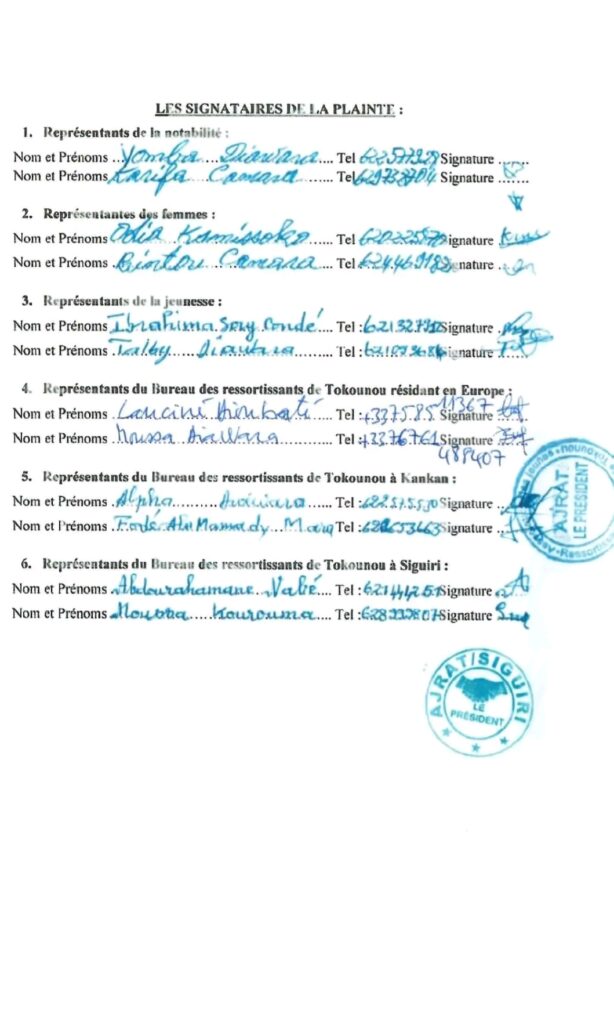 LES SIGNATAIRES DE LA PLAINTE :
1. Représentants de la notabilité :
Nom et Prénoms ... Yomba .... Diawara .... Tel 622577929 Signature ......
Nom et Prénoms Karifa Camara ......... Tel 629732704 Signature ......
2. Représentantes des femmes :
Nom et Prénoms Odia Kamissoko ...... Tel Signature
Nom et Prénoms Bintou Camara ...... Tel 624469182 Signature
3. Représentants de la jeunesse :
Nom et Prénoms Ibrahima Sory Condé Tel : Signature
Nom et Prénoms Talby ..... Diawara ..... Tel : Signature
4. Représentants du Bureau des ressortissants de Tokounou résidant en Europe :
Nom et Prénoms Lanciné Dioubaté Tel : +337585 11367 Signature
Nom et Prénoms Moussa Diawara Tel : +3376761 488407 Signature
5. Représentants du Bureau des ressortissants de Tokounou à Kankan :
Nom et Prénoms Alpha ...... Tel : Signature
Nom et Prénoms Fodé Mamady Tel : Signature
6. Représentants du Bureau des ressortissants de Tokounou à Siguiri :
Nom et Prénoms Abdourahamane Nabé .... Tel : 621444251 Signature
Nom et Prénoms Kourouma .... Tel : Signature
AJRAT
LE PRÉSIDENT
AJRAT/SIGUIRI
LE
PRÉSIDENT